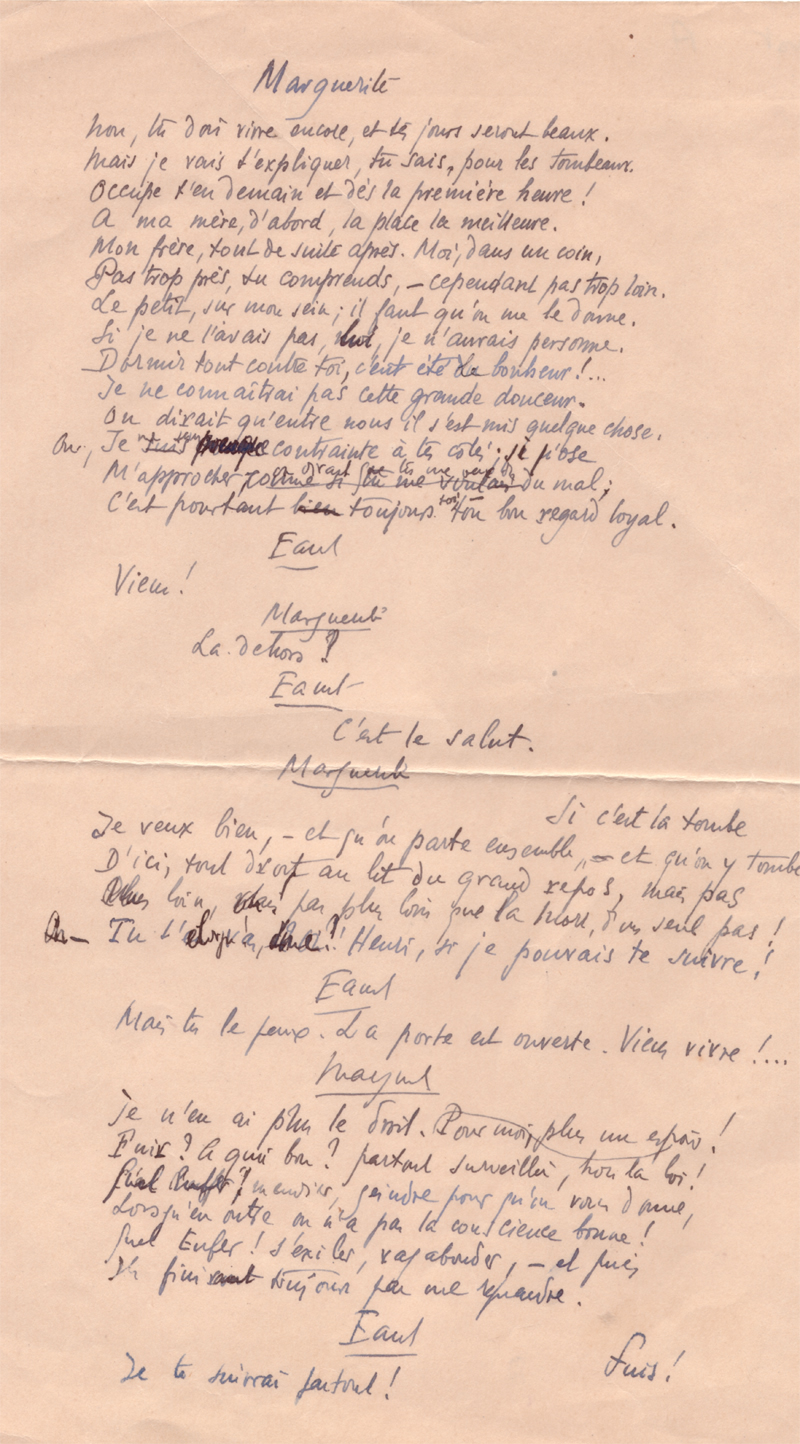 Marguerite
Non, tu dois vivre encore, et tes jours seront beaux.
Mais je vais t'expliquer, tu sais, pour les tombeaux.
Occupe t'en demain et dès la première heure !
A ma mère, d'abord, la place la meilleure.
Mon frère, tout de suite après. Moi, dans un coin,
Pas trop près, tu comprends, – cependant pas trop loin.
Le petit, sur mon sein ; il faut qu'on me le donne.
Si je ne l'avais pas, lui, je n'aurais personne.
Dormir tout contre toi, c'eût été le bonheur !...
Je ne connaîtrai pas cette grande douceur.
On dirait qu'entre nous il s'est mis quelque chose.
Je suis presque contrainte à tes côtés ; si j'ose
M'approcher, comme si tu me voulais du mal ;
C'est pourtant bien toujours toi, ton bon regard loyal.
Faust
Viens !
Marguerite
Là-dehors ?
Faust
C'est le salut.
Marguerite
Si c'est la tombe
Je veux bien, – et qu'on parte ensemble, – et qu'on y tombe
D'ici, tout droit au lit du grand repos, mais pas
Plus loin, pas plus loin que la mort, d'un seul pas !
Tu t'en vas, Henri, si je pouvais te suivre !
Faust
Mais tu le peux. La porte est ouverte. Viens vivre !...
Marguerite
Je n'en ai plus le droit. Pour moi, plus un espoir !
Fuir ? A quoi bon ? partout surveillés, hors la loi !
Quel Enfer ! mendier, geindre pour qu'on vous donne,
Lorsqu'en outre on n'a pas la conscience bonne !
Quel Enfer ! s'exiler, vagabonder, – et puis
Ils finiront toujours par me reprendre.
Faust
Fuis !
Je te suivrai partout !